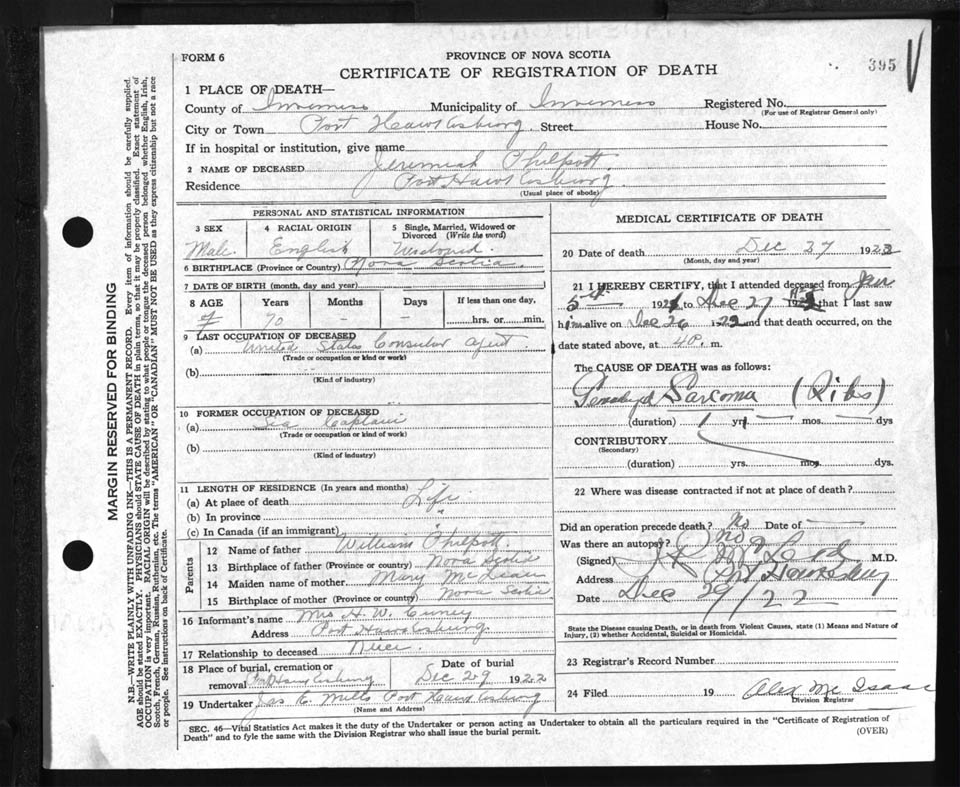 FORM 6
PROVINCE OF NOVA SCOTIA
395
CERTIFICATE OF REGISTRATION OF DEATH
1 PLACE OF DEATH—
County of Inverness Municipality of Inverness Registered No.
(For use of Registrar General only)
City or Town Port Hawkesbury Street House No.
If in hospital or institution, give name
2 NAME OF DECEASED Jeremiah Philpott
Residence Port Hawkesbury
(Usual place of abode)
MARGIN RESERVED FOR BINDING
N.B.—WRITE PLAINLY WITH UNFADING INK—THIS IS A PERMANENT RECORD. Every item of information should be carefully supplied.
AGE should be stated EXACTLY. PHYSICIANS should STATE CAUSE OF DEATH in plain terms, so that it may be properly classified. Exact statement of
OCCUPATION is very important. RACIAL ORIGIN will be described by stating to what people or tongue the deceased person belonged whether English, Irish,
Scotch, French, German, Russian, Ruthenian, etc. The terms "AMERICAN" OR "CANADIAN" MUST NOT BE USED as they express citizenship but not a race
or people. See instructions on back of Certificate.
PERSONAL AND STATISTICAL INFORMATION
3 SEX
4 RACIAL ORIGIN
5 Single, Married, Widowed or
Divorced (Write the word)
Male English Widowed
6 BIRTHPLACE (Province or Country) Nova Scotia
7 DATE OF BIRTH (month, day and year)
8 AGE Years Months Days If less than one day,
70 — — hrs. or min.
9 LAST OCCUPATION OF DECEASED
(a) United States Consular Agent
(Trade or occupation or kind or work)
(b)
(Kind of industry)
10 FORMER OCCUPATION OF DECEASED
(a) Sea Captain
(Trade or occupation or kind of work)
(b)
(Kind of industry)
11 LENGTH OF RESIDENCE (In years and months)
(a) At place of death Life
(b) In province "
(c) In Canada (if an immigrant)
Parents
12 Name of father William Philpott
13 Birthplace of father (Province or country) Nova Scotia
14 Maiden name of mother Mary McLean
15 Birthplace of mother (Province or country) Nova Scotia
16 Informant's name Mrs H. W.
Address Port Hawkesbury
17 Relationship to deceased Niece
18 Place of burial, cremation or
removal Port Hawkesbury
Date of burial
Dec 29 1922
19 Undertaker Jas E. Mills Port Hawkesbury
(Name and Address)
MEDICAL CERTIFICATE OF DEATH
20 Date of death Dec 27 192
(Month, day and year)
21 I HEREBY CERTIFY, that I attended deceased from Jan
5th 192 to Dec 27 that I last saw
him alive on Dec 26 1922 and that death occurred, on the
date stated above, at 4 P. m.
The CAUSE OF DEATH was as follows:
Sarcoma (Ribs)
(duration) 1 yrs — mos. — dys
CONTRIBUTORY
(Secondary)
(duration) yrs. mos. dys.
22 Where was disease contracted if not at place of death?
Did an operation precede death? No Date of —
Was there an autopsy? no
(Signed) M.D.
Address
Date Dec 29/22
State the Disease causing Death, or in death from Violent Causes, state (1) Means and Nature of
Injury, (2) whether Accidental, Suicidal or Homicidal.
23 Registrar's Record Number
24 Filed 19 Alex McIsaac
Division Registrar
SEC. 46—Vital Statistics Act makes it the duty of the Undertaker or person acting as Undertaker to obtain all the particulars required in the "Certificate of Registration of
Death" and to fyle the same with the Division Registrar who shall issue the burial permit.
(OVER)